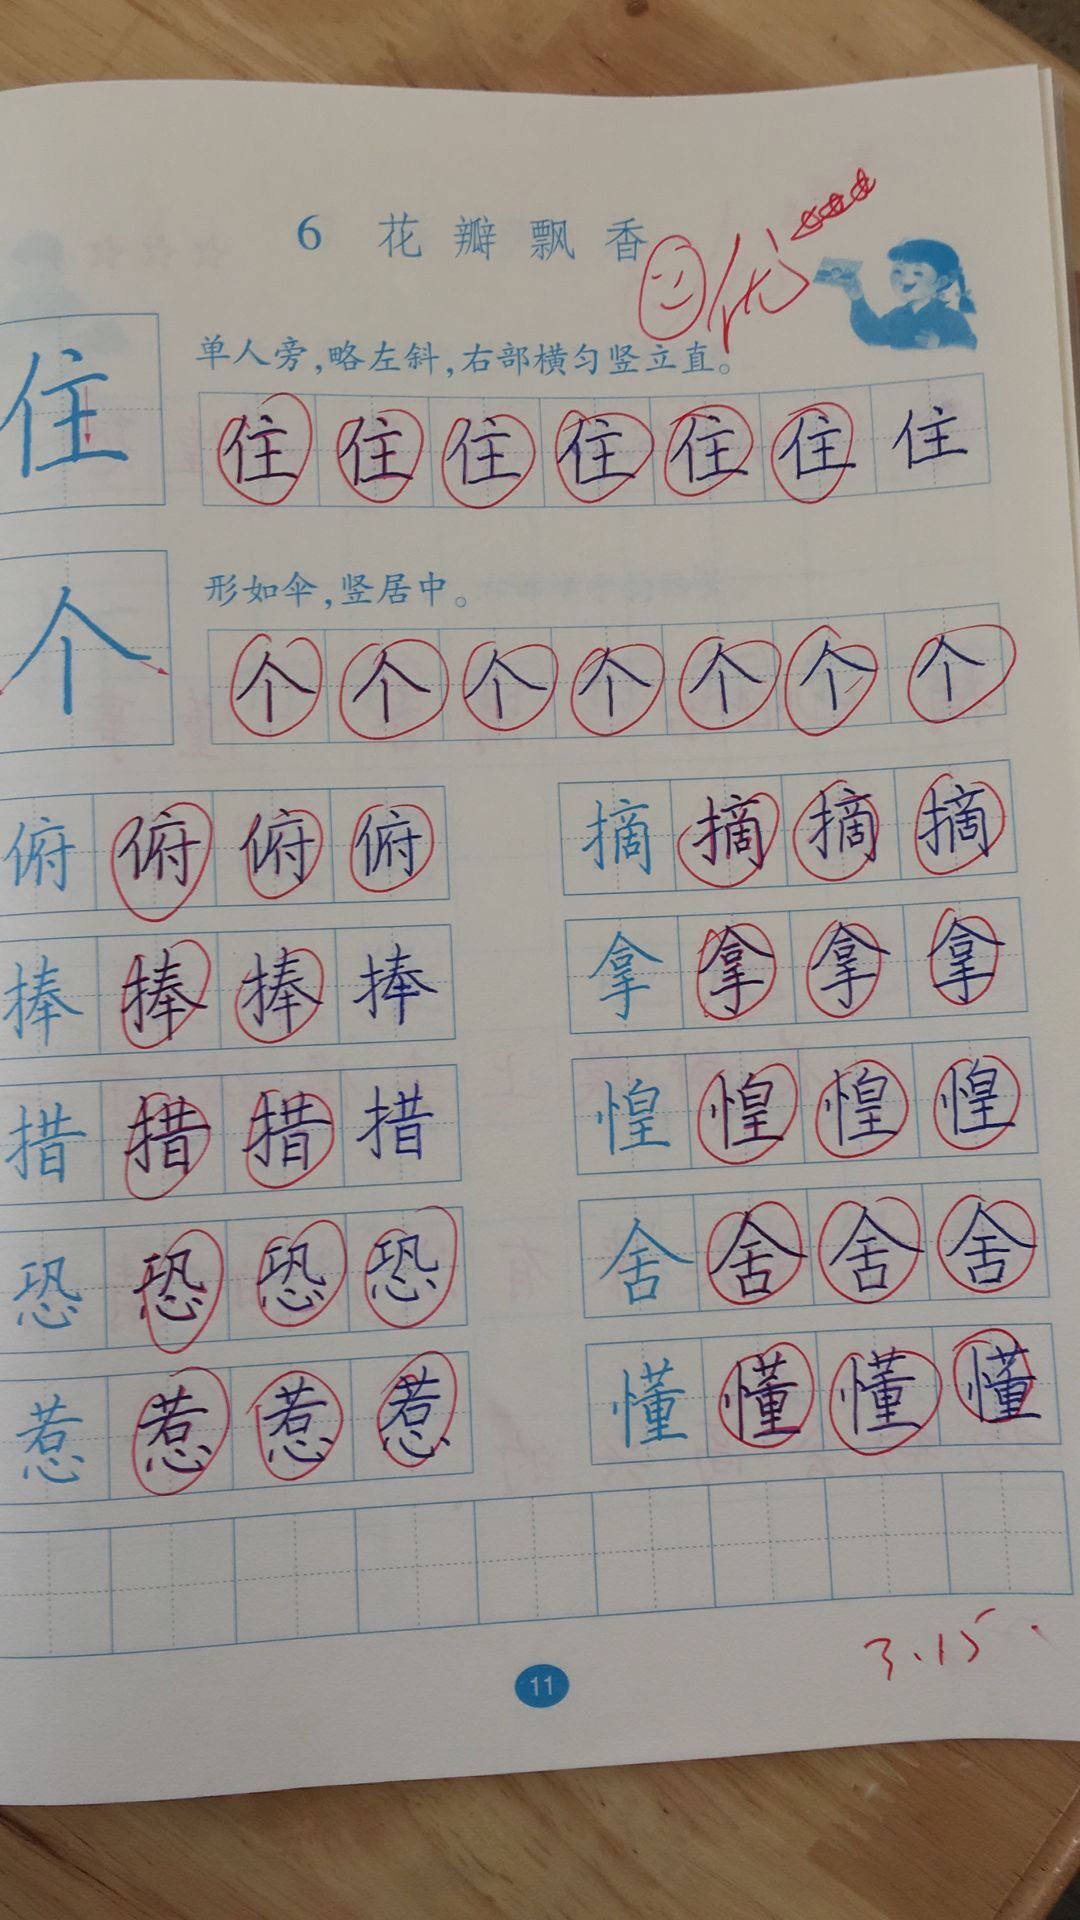 6 花瓣飘香
优
单人旁,略左斜,右部横匀竖立直。
住 住 住 住 住 住 住 住
形如伞,竖居中。
个 个 个 个 个 个 个 个
俯 俯 俯 俯 摘 摘 摘 摘
捧 捧 捧 捧 拿 拿 拿 拿
措 措 措 措 惶 惶 惶 惶
恐 恐 恐 恐 舍 舍 舍 舍
惹 惹 惹 惹 懂 懂 懂 懂
3.15
11